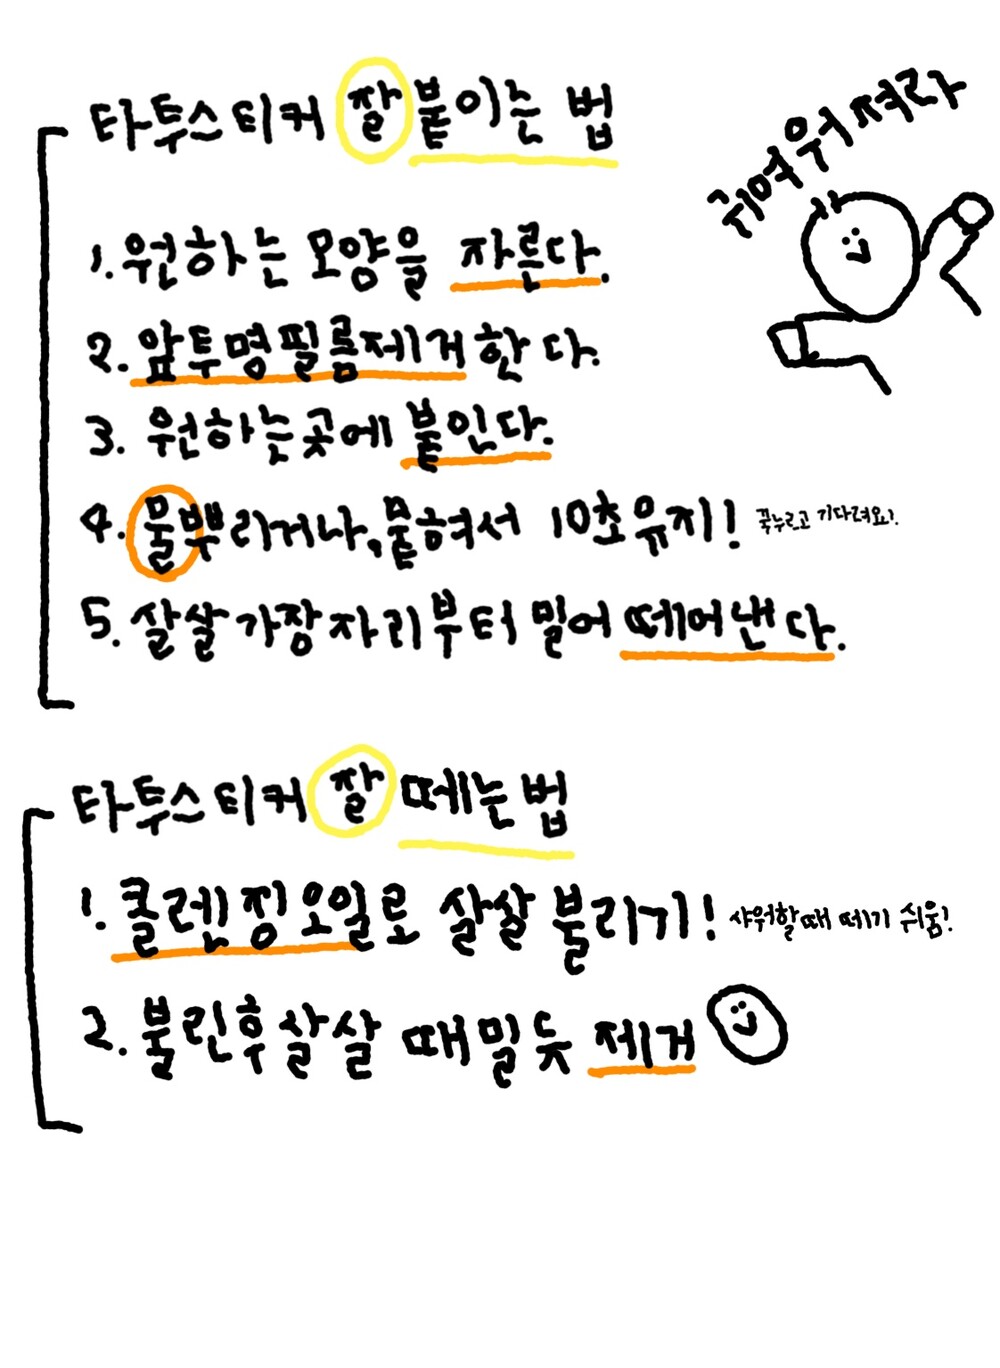 타투스티커 잘 붙이는 법
귀여워져라
1. 원하는 모양을 자른다.
2. 앞투명필름제거한다.
3. 원하는곳에 붙인다.
4. 물뿌리거나, 뭍혀서 10초유지! 꾹누르고 기다려요!
5. 살살가장자리부터 밀어 떼어낸다.
타투스티커 잘 떼는법
1. 클렌징오일로 살살 불리기! 샤워할때 떼기 쉬움!
2. 불린후살살 때밀듯 제거